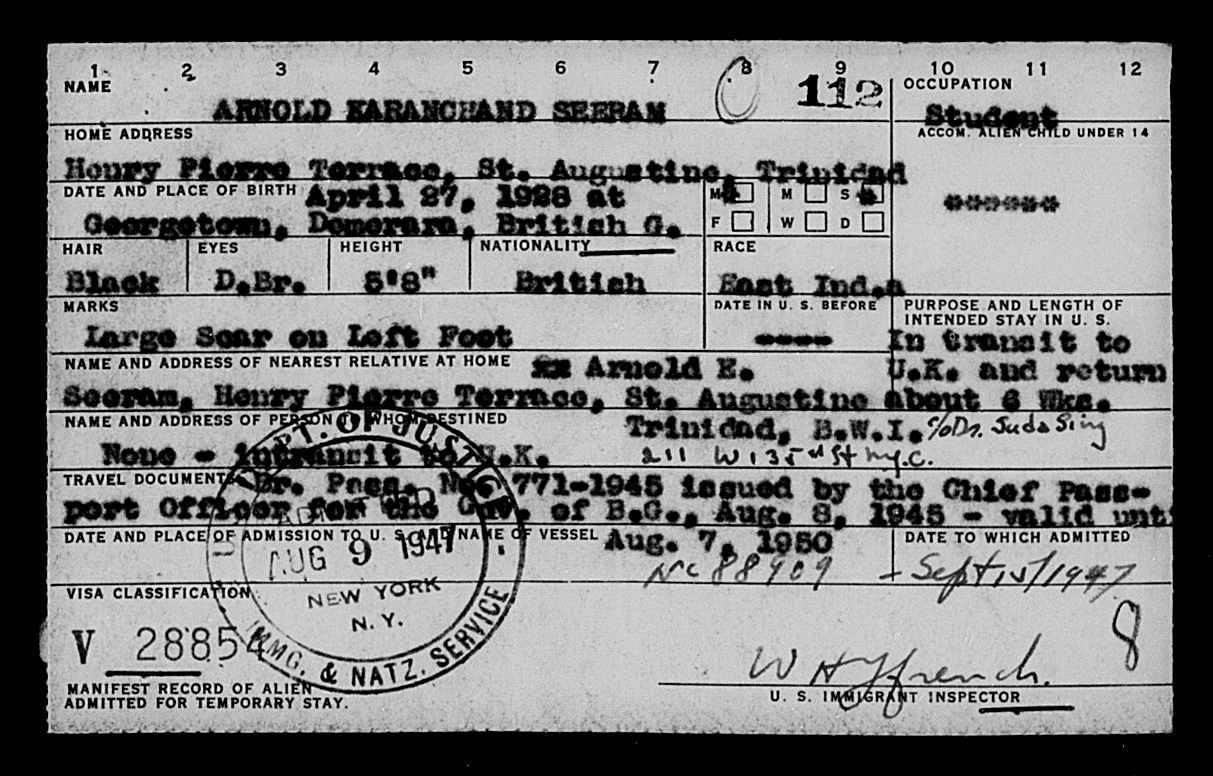 1 2 3 4 5 6 7 8 9 10 11 12
NAME
112
OCCUPATION
ARNOLD KARANCHAND SEERAM
Student
HOME ADDRESS
ACCOM. ALIEN CHILD UNDER 14
Henry Pierre Terrace, St. Augustine, Trinidad
DATE AND PLACE OF BIRTH April 27, 1928 at
M M S
******
Georgetown, Demerara, British G.
F W D
HAIR EYES HEIGHT NATIONALITY RACE
Black D.Br. 5'8" British East Ind.n
MARKS
DATE IN U. S. BEFORE
PURPOSE AND LENGTH OF
INTENDED STAY IN U. S.
Large Scar on Left Foot
----
In transit to
NAME AND ADDRESS OF NEAREST RELATIVE AT HOME xx Arnold E.
U.K. and return
Seeram, Henry Pierre Terrace, St. Augustine about 6 Wks.
NAME AND ADDRESS OF PERSON TO WHOM DESTINED
Trinidad, B.W.I. c/o Dr. Suda Sing
None - intransit to U.K.
211 W 135th St N.Y.C.
TRAVEL DOCUMENTS Br. Pass. No. 771-1945 issued by the Chief Pass-
port Officer for the Gov. of B.G., Aug. 8, 1945 - valid unti
DATE AND PLACE OF ADMISSION TO U. S. AND NAME OF VESSEL Aug. 7, 1950
DATE TO WHICH ADMITTED
NC 88909
Sept 15/1947
DEPT. OF JUSTICE
ADMITTED
AUG 9 1947
NEW YORK
N. Y.
IMMG. & NATZ. SERVICE
VISA CLASSIFICATION
V 28854
8
W H Ffrench.
MANIFEST RECORD OF ALIEN
ADMITTED FOR TEMPORARY STAY.
U. S. IMMIGRANT INSPECTOR